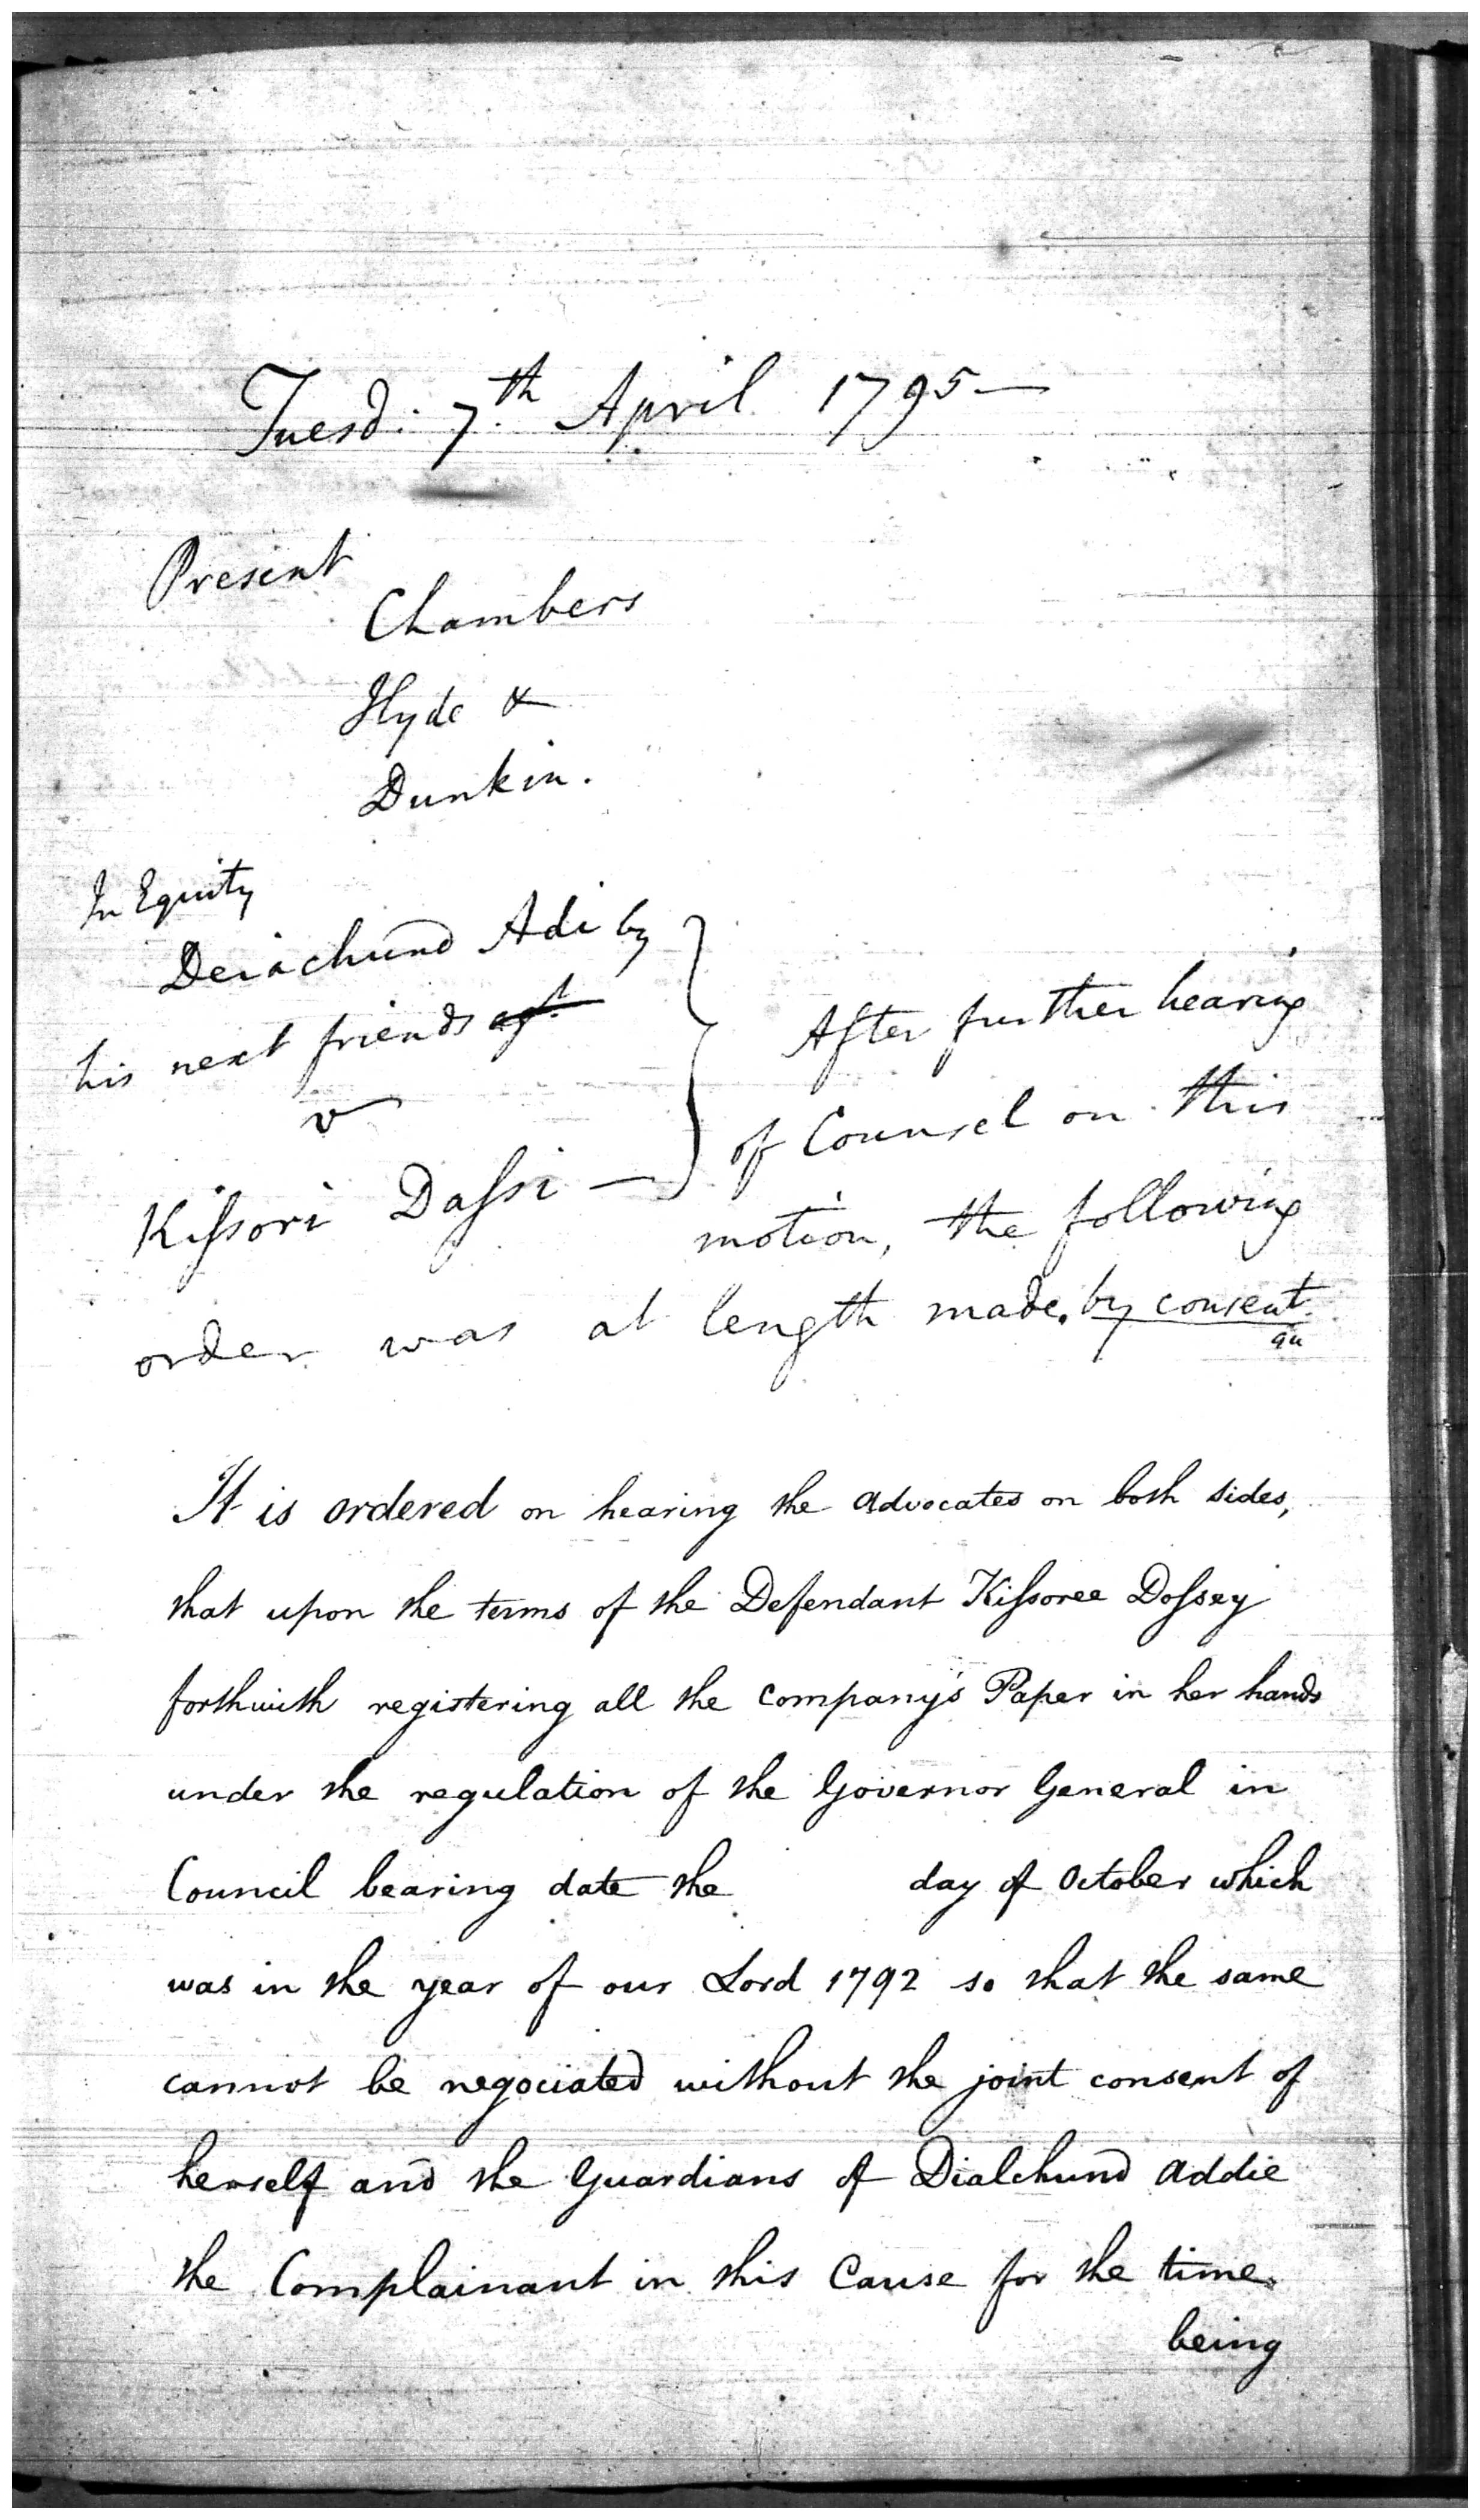 Tuesd: 7th April 1795—
Present
Chambers
Hyde &
Dunkin.
In Equity
Deiachund Adi by
his next friends agt
v
Kissori Dassi —
After further hearing
of Counsel on this
motion, the following
order was at length made, by consent.
qu
It is ordered on hearing the advocates on both sides,
that upon the terms of the Defendant Kissoree Dossey
forthwith registering all the Company's Paper in her hands
under the regulation of the Governor General in
Council bearing date the day of October which
was in the year of our Lord 1792 so that the same
cannot be negociated without the joint consent of
herself and the Guardians of Dialchund Addie
the Complainant in this Cause for the time
being